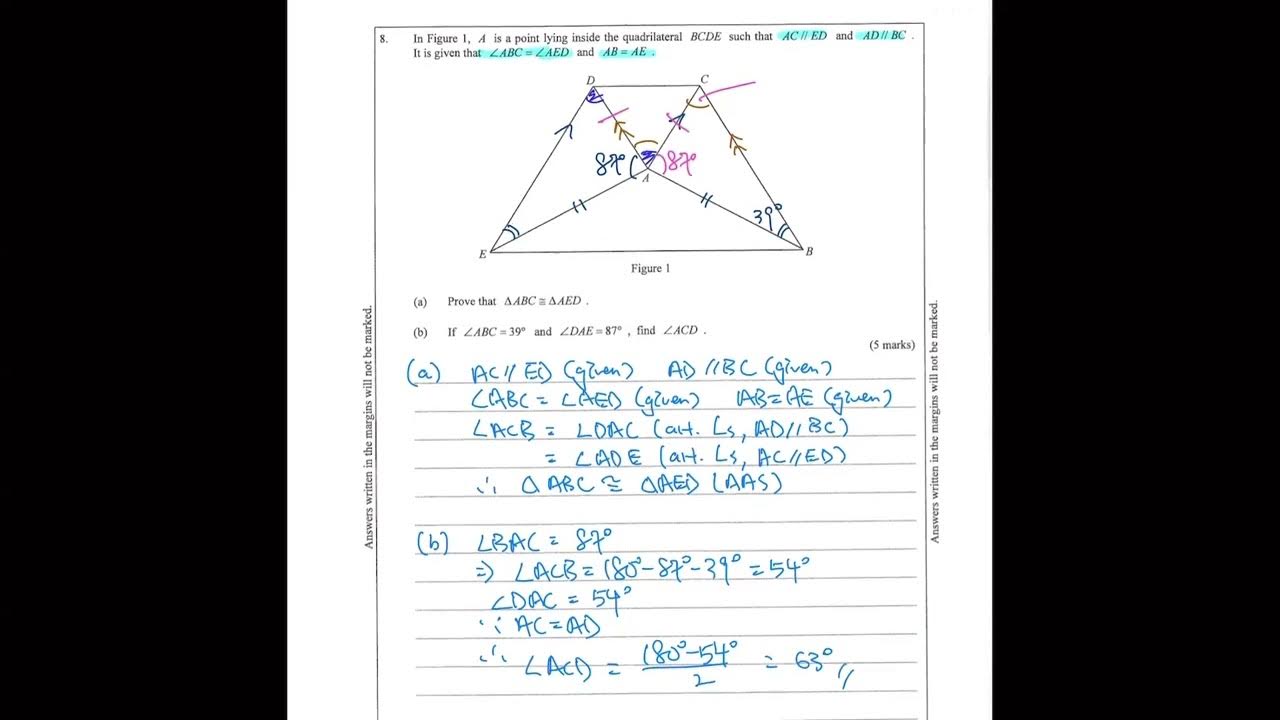 8. In Figure 1, A is a point lying inside the quadrilateral BCDE such that AC // ED and AD // BC .
It is given that ∠ABC = ∠AED and AB = AE .
D
C
87°
87°
A
39°
E
B
Figure 1
(a) Prove that ΔABC ≅ ΔAED .
(b) If ∠ABC = 39° and ∠DAE = 87° , find ∠ACD .
(5 marks)
Answers written in the margins will not be marked.
Answers written in the margins will not be marked.
(a) AC // ED (given) AD // BC (given)
∠ABC = ∠AED (given) AB = AE (given)
∠ACB = ∠DAC (alt. ∠s, AD // BC)
= ∠ADE (alt. ∠s, AC // ED)
∴ Δ ABC ≅ ΔAED (AAS)
(b) ∠BAC = 87°
⇒ ∠ACB = 180° - 87° - 39° = 54°
∠DAC = 54°
∵ AC = AD
∴ ∠ACD = 180° - 54° / 2 = 63° //